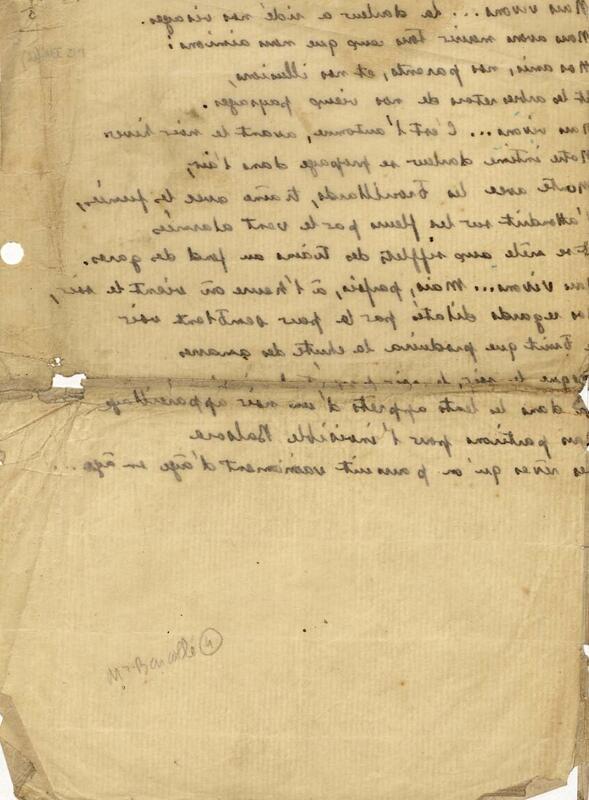 Nous vivons.... la douleur a ridé nos visages.
Nous avons mourir tous ceux que nous aimions:
Nos amis, nos parents, et nos illusions,
Et les arbres retors de nos vieux paysages.
Nous vivons.... C'est l'automne, avant le noir hiver.
Notre intime douleur se propage dans l'air,
Monte avec les brouillards, traîne avec les fumées,
S'attendrit sur les fleurs par le vent
Et se mêle aux sifflets des trains au fond des gares.
Nous vivons... Mais, parfois, à l'heure où vient le soir,
Nos regards dilatés par la peur semblent voir
Le bruit que produira la chute des amarres
Lorsque le soir, le soir
dans les lents apprêts d'un noir appareillage
Nous partirons pour l'invisible
Des rêves qu'on poursuit vainement d'âge en âge....
Mr Barcallé 4